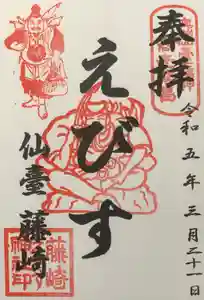 奉拝
令和五年三月二十一日
えびす
仙臺 藤崎
藤崎
神社印